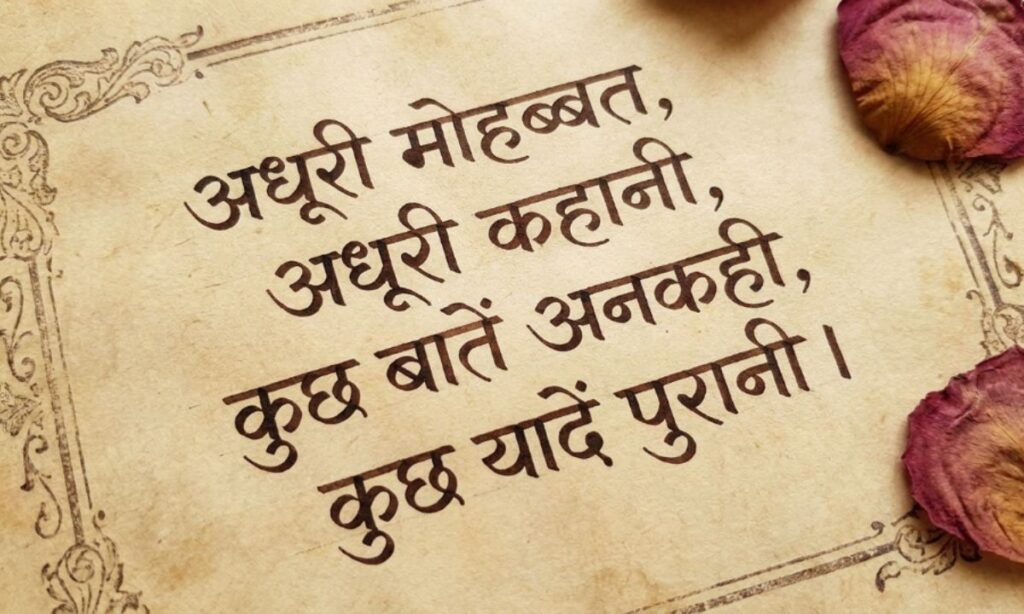 अधूरी मोहब्बत,
अधूरी कहानी,
कुछ बातें अनकही,
कुछ यादें पुरानी।